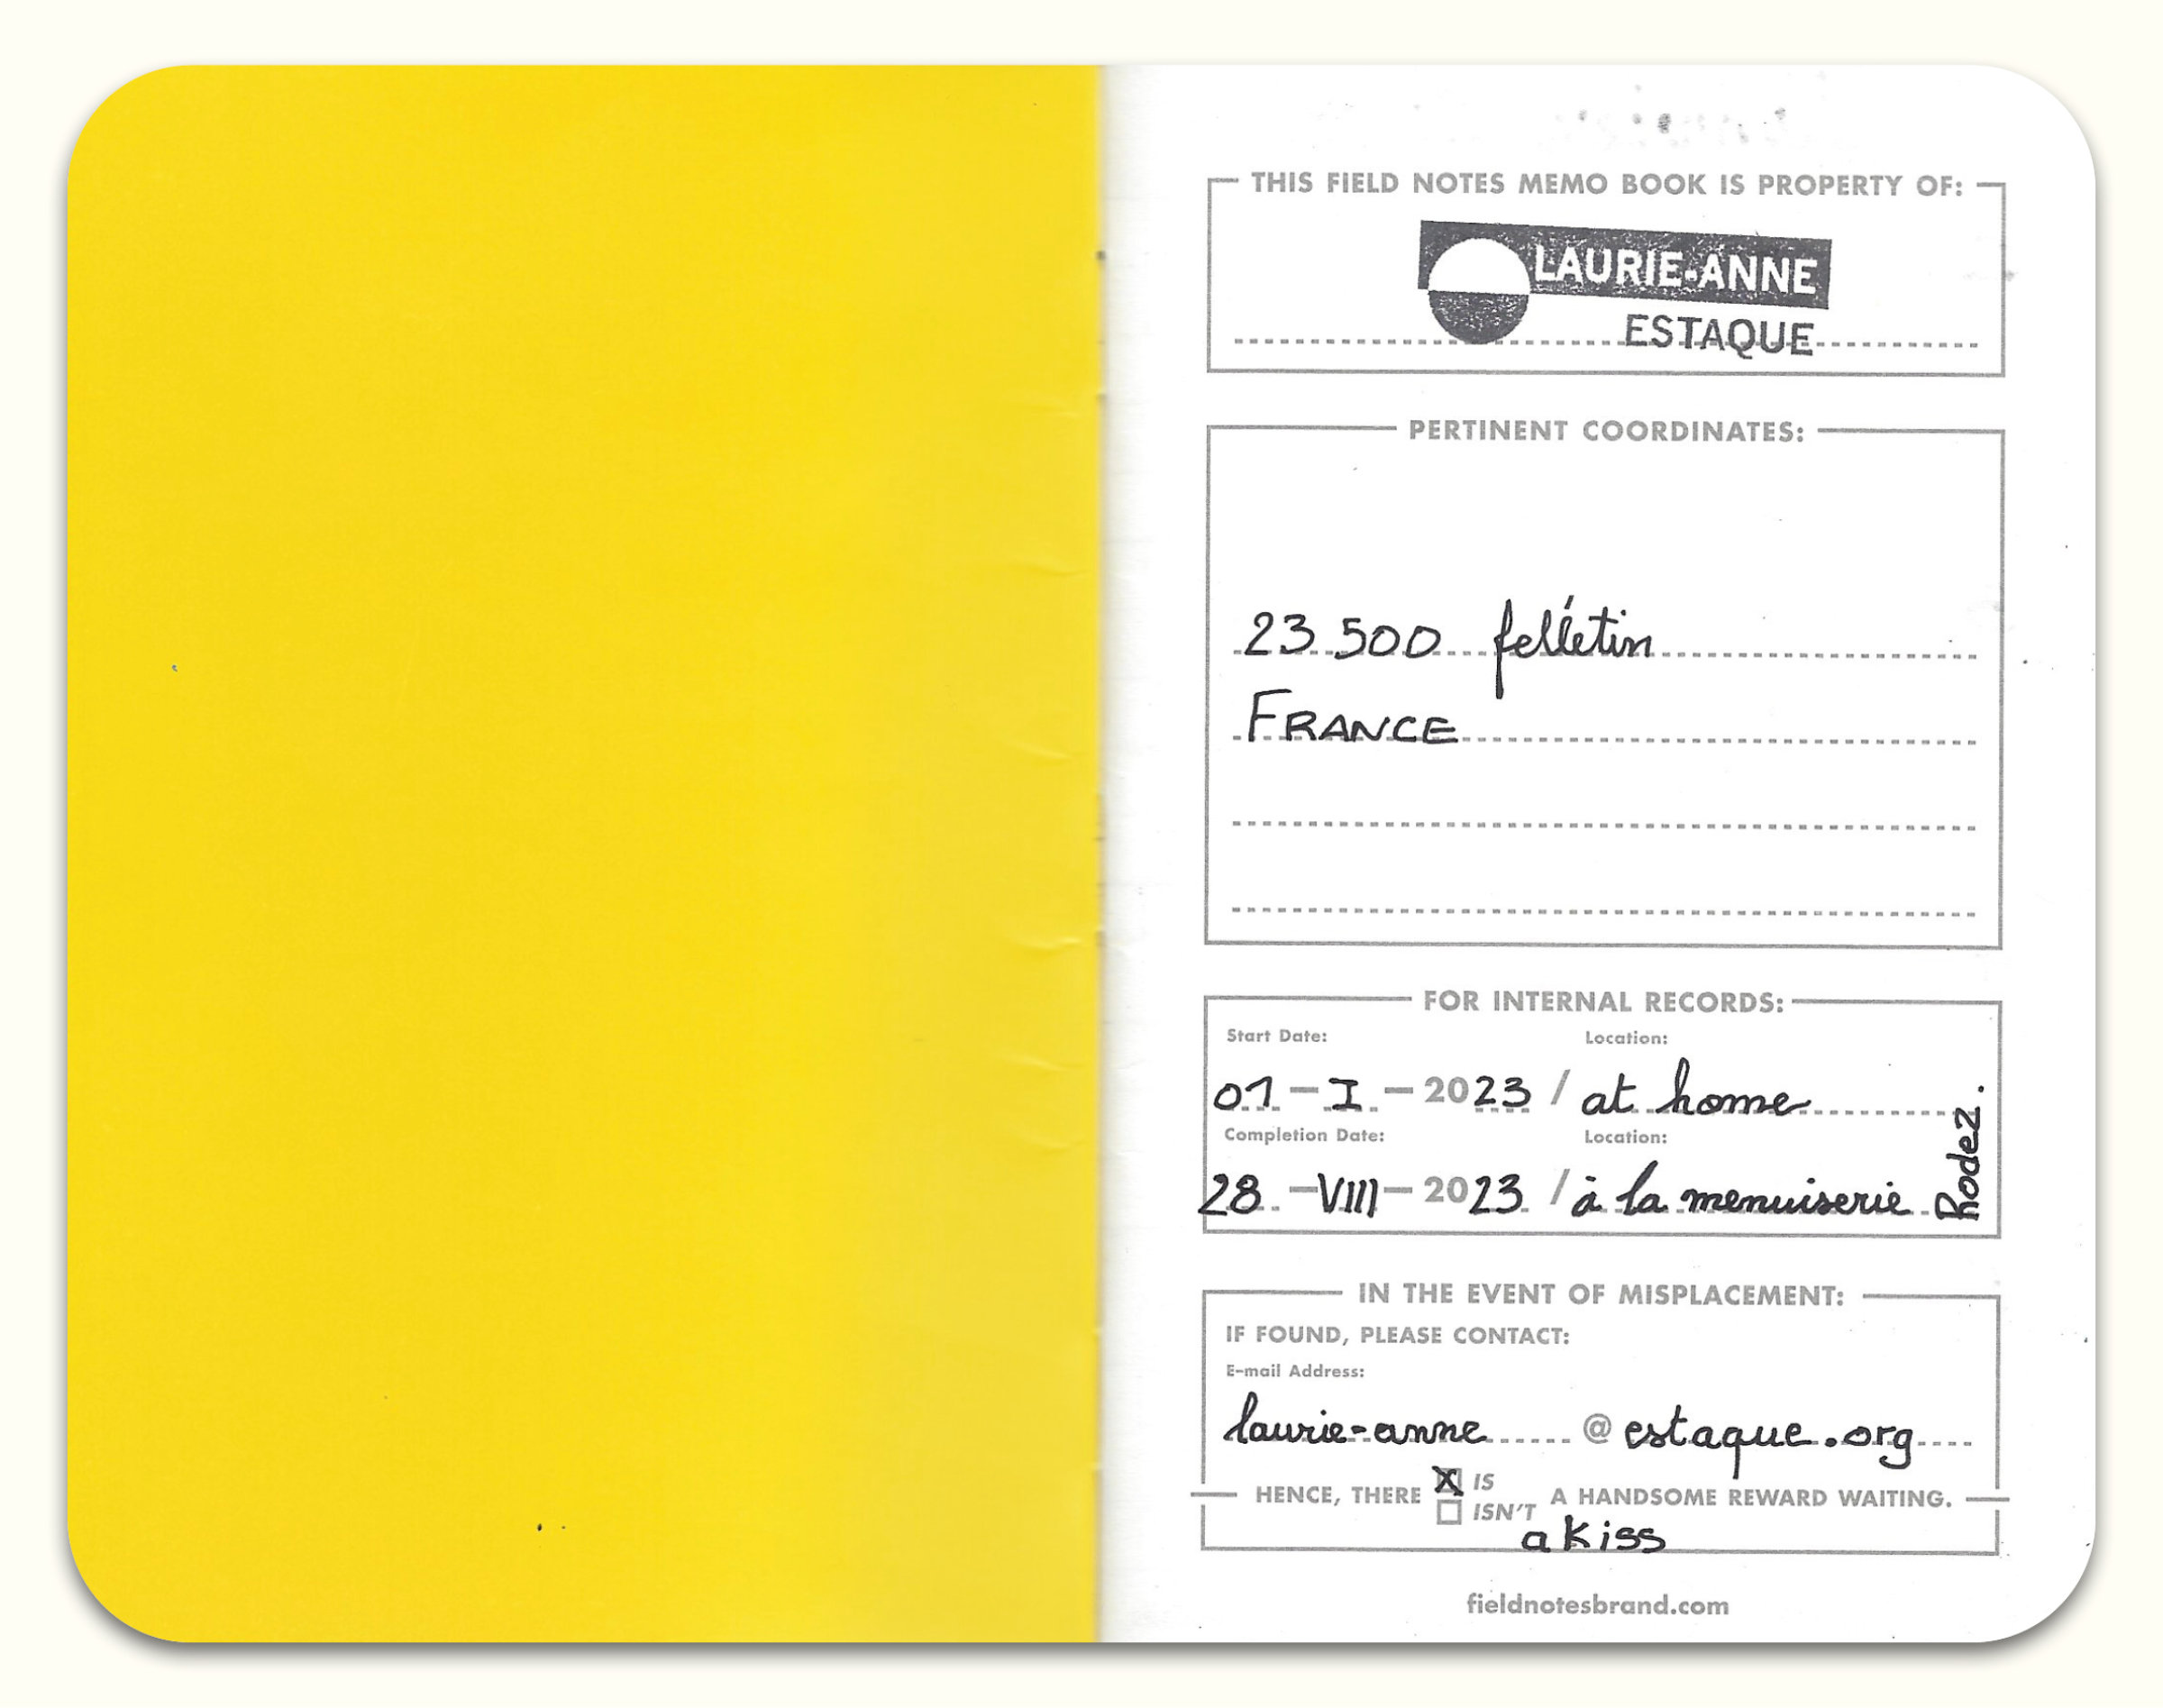 THIS FIELD NOTES MEMO BOOK IS PROPERTY OF:
LAURIE-ANNE
ESTAQUE
PERTINENT COORDINATES:
23.500 felletin
FRANCE
FOR INTERNAL RECORDS:
Start Date: Location:
01 - I - 2023 / at home
Completion Date: Location:
28 - VIII - 2023 / à la menuiserie Rodez.
IN THE EVENT OF MISPLACEMENT:
IF FOUND, PLEASE CONTACT:
E-mail Address:
laurie-anne @ estaque.org
HENCE, THERE X IS ISN'T A HANDSOME REWARD WAITING.
a kiss
fieldnotesbrand.com